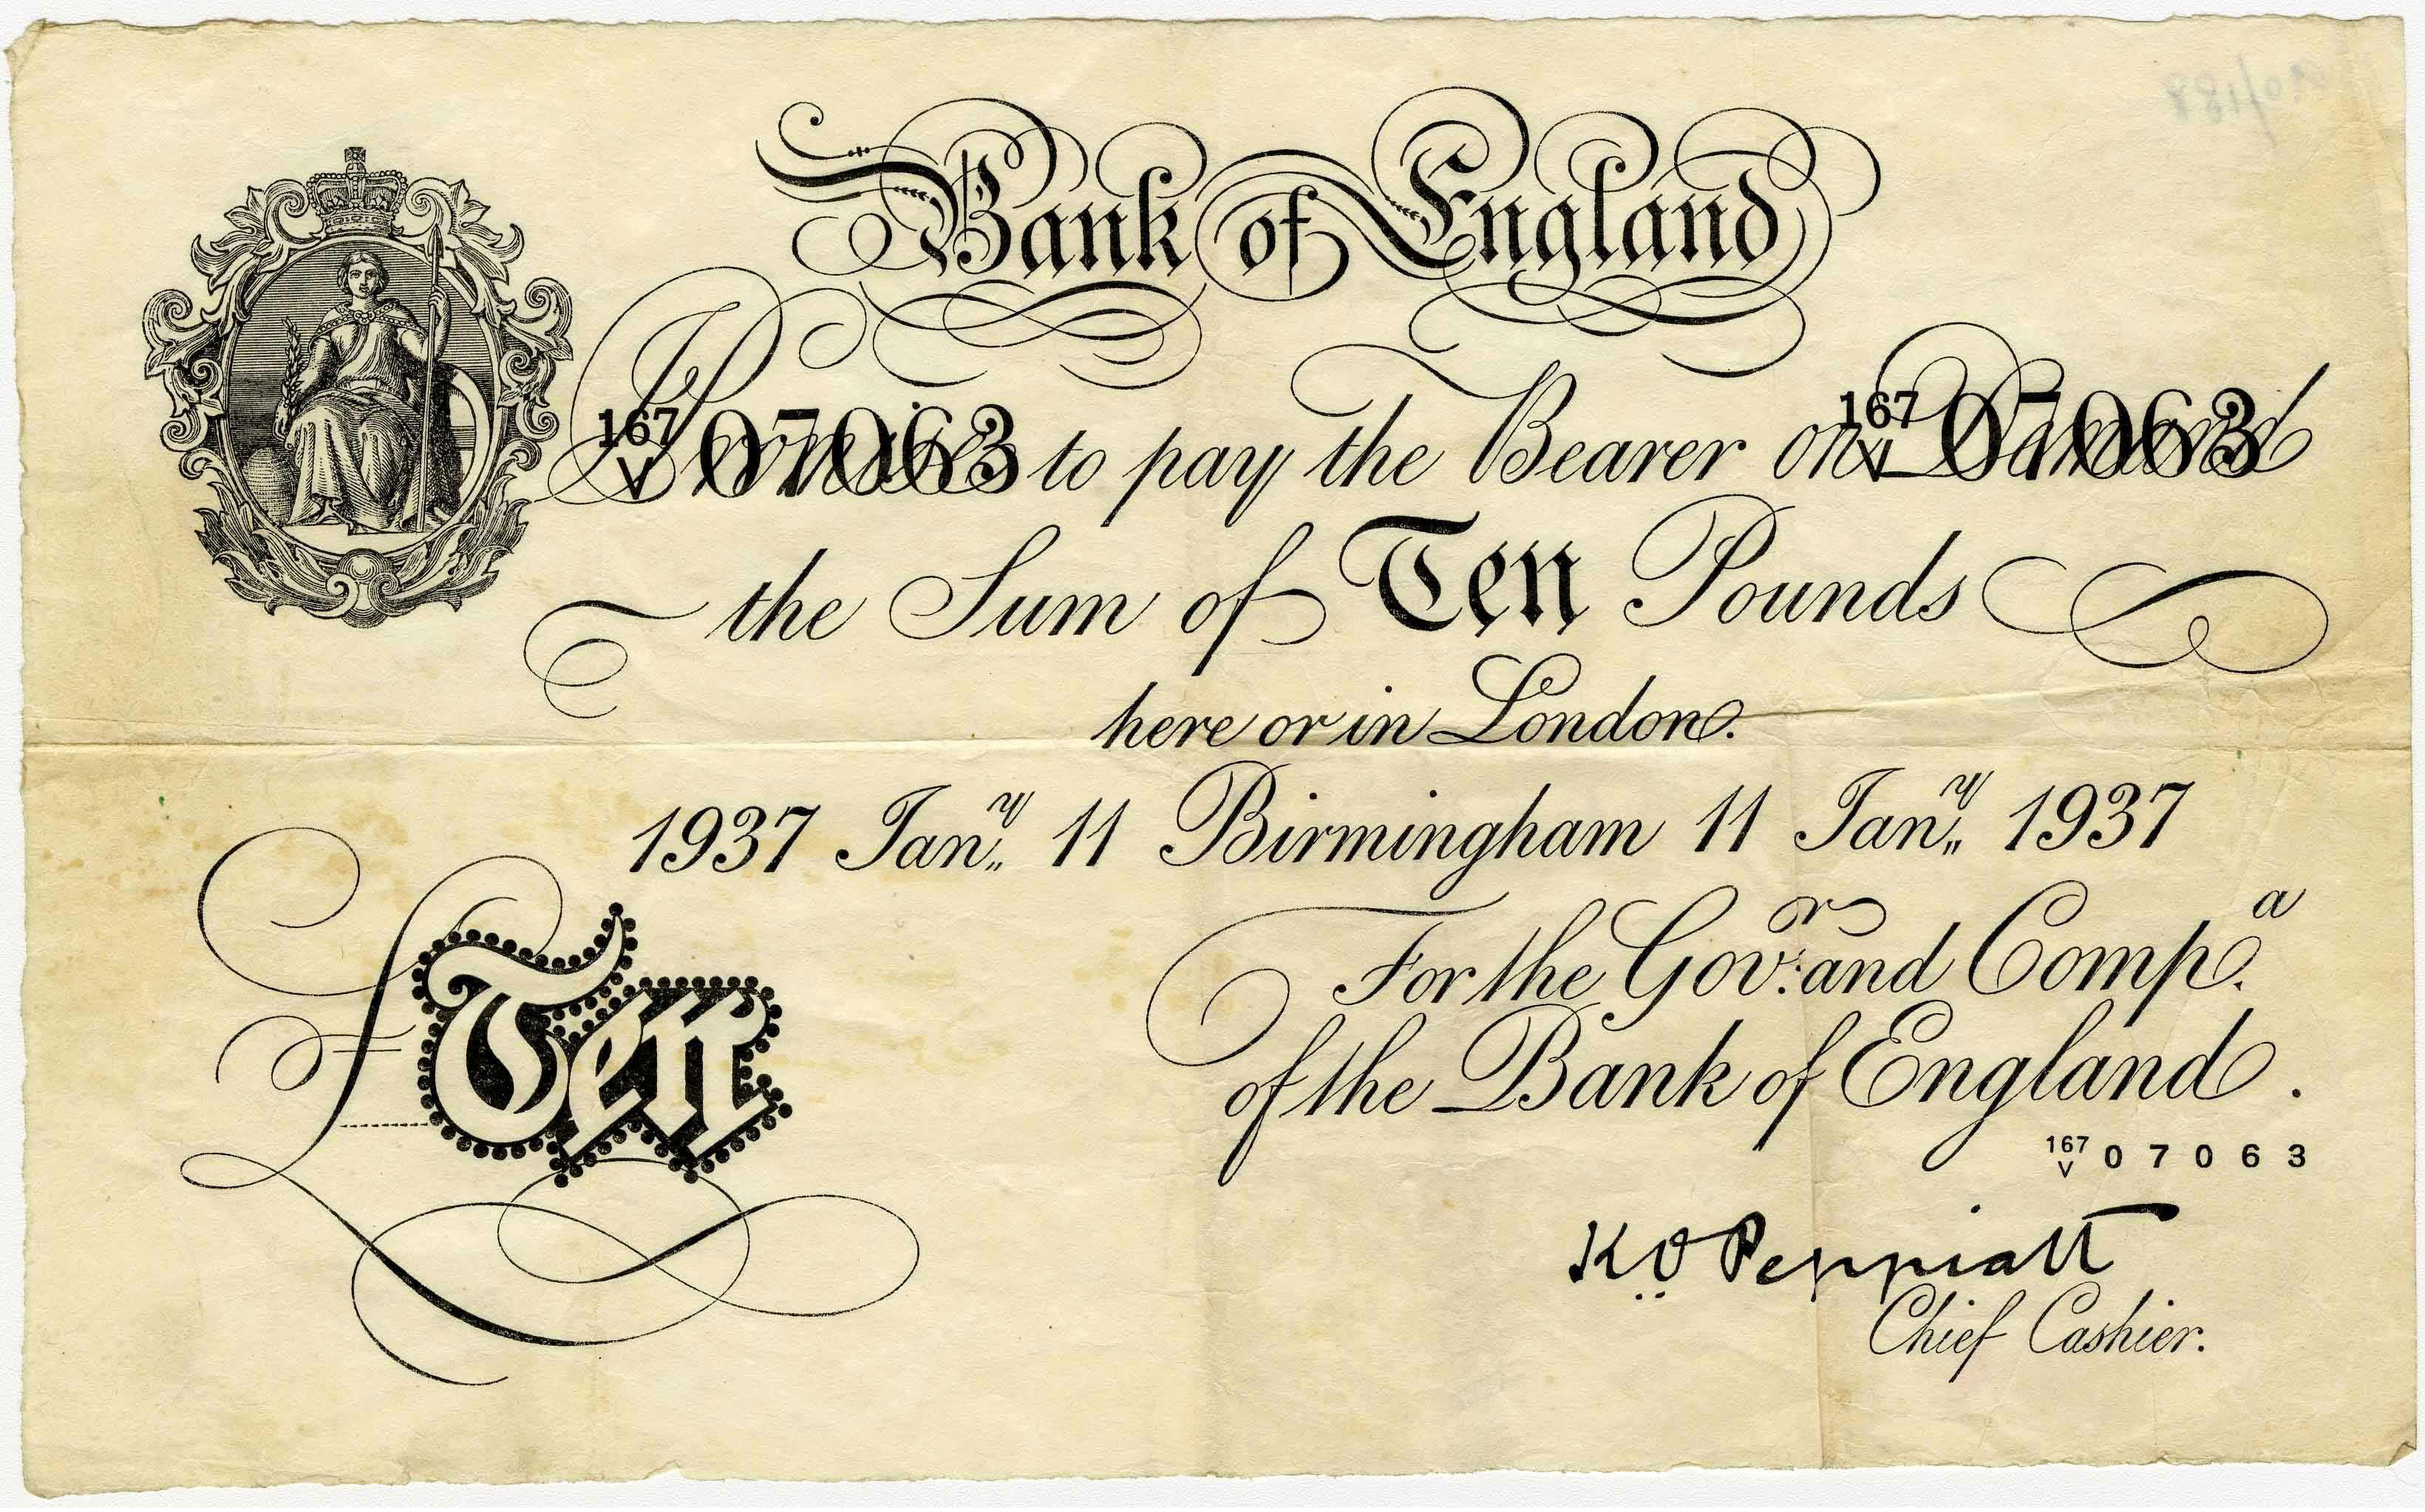 Bank of England
167 V 07063 167 V 07063
I Promise to pay the Bearer on Demand
the Sum of Ten Pounds
here or in London.
1937 Jan.y 11 Birmingham 11 Jan.y 1937
For the Gov.or and Comp.a
of the Bank of England.
£Ten
167 V 07063
K O Peppiatt
Chief Cashier.